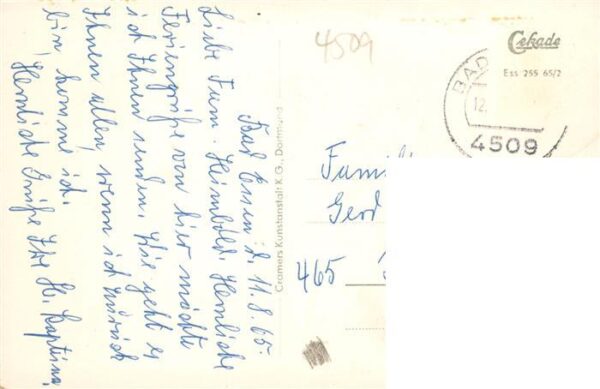 Bad Essen, d. 11.8.65.
Liebe Fam. Heimbold. Herzliche
Feriengrüße von hier möchte
ich Ihnen senden. Wie geht es
Ihnen allen, wenn ich zurück
bin, komme ich.
Herzliche Grüße Ihre
Cramers Kunstanstalt K.G., Dortmund
4509
Cekade
Ess 255 65/2
BAD
12.
4509
Famili
Gerd
465